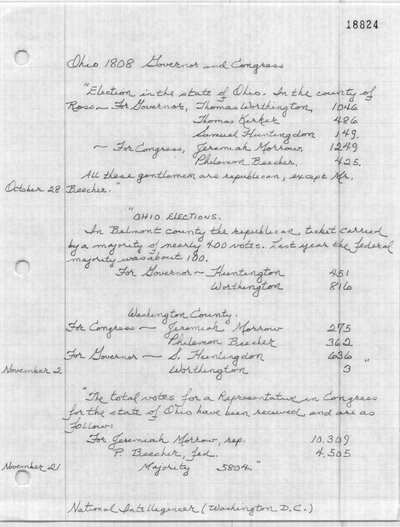 18824
Ohio 1808 Governor and Congress
"Election in the state of Ohio. In the county of
Ross – For Governor, Thomas Worthington, 1046
Thomas Kerker 486
Samuel Huntingdon 149.
~ For Congress, Jeremiah Morrow, 1249
Philemon Beecher. 425.
All these gentlemen are republican, except Mr.
October 28 Beecher."
"OHIO ELECTIONS.
In Belmont county the republican ticket carried
by a majority of nearly 400 votes. Last year the federal
majority was about 100.
For Governor ~ Huntington 451
Worthington 816
Washington County.
For Congress – Jeremiah Morrow 275
Philemon Beecher 362
For Governor – S. Huntingdon 636
November 2 Worthington 3 "
"The total votes for a Representative in Congress
for the state of Ohio have been received and are as
follow:
For Jeremiah Morrow, rep. 10.309
P. Beecher, fed. 4.505
November 21 Majority 5804."
National Intelligencer (Washington, D.C.)